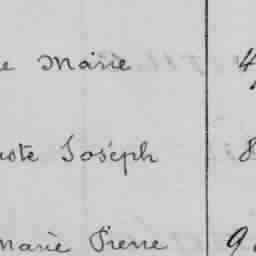 e Marie 4
uste Joseph 8
Marie Pierre 9